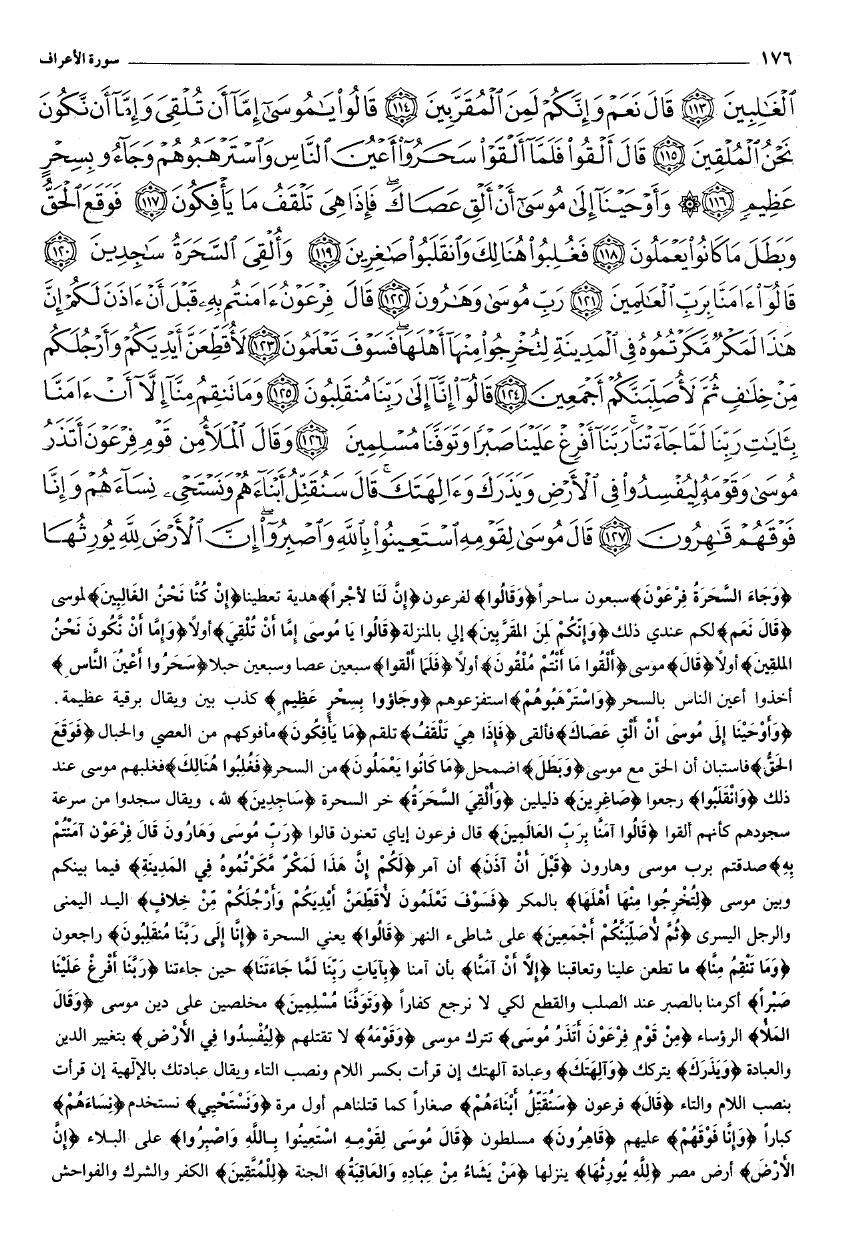 ١٧٦ سورة الأعراف
ٱلْغَٰلِبِينَ ١١٣ قَالَ نَعَمْ وَإِنَّكُمْ لَمِنَ ٱلْمُقَرَّبِينَ ١١٤ قَالُوا۟ يَٰمُوسَىٰٓ إِمَّآ أَن تُلْقِىَ وَإِمَّآ أَن نَّكُونَ
نَحْنُ ٱلْمُلْقِينَ ١١٥ قَالَ أَلْقُوا۟ فَلَمَّآ أَلْقَوْا۟ سَحَرُوٓا۟ أَعْيُنَ ٱلنَّاسِ وَٱسْتَرْهَبُوهُمْ وَجَآءُو بِسِحْرٍ
عَظِيمٍ ١١٦ ۞ وَأَوْحَيْنَآ إِلَىٰ مُوسَىٰٓ أَنْ أَلْقِ عَصَاكَ ۖ فَإِذَا هِىَ تَلْقَفُ مَا يَأْفِكُونَ ١١٧ فَوَقَعَ ٱلْحَقُّ
وَبَطَلَ مَا كَانُوا۟ يَعْمَلُونَ ١١٨ فَغُلِبُوا۟ هُنَالِكَ وَٱنقَلَبُوا۟ صَٰغِرِينَ ١١٩ وَأُلْقِىَ ٱلسَّحَرَةُ سَٰجِدِينَ ١٢٠
قَالُوٓا۟ ءَامَنَّا بِرَبِّ ٱلْعَٰلَمِينَ ١٢١ رَبِّ مُوسَىٰ وَهَٰرُونَ ١٢٢ قَالَ فِرْعَوْنُ ءَامَنتُم بِهِۦ قَبْلَ أَنْ ءَاذَنَ لَكُمْ إِنَّ
هَٰذَا لَمَكْرٌ مَّكَرْتُمُوهُ فِى ٱلْمَدِينَةِ لِتُخْرِجُوا۟ مِنْهَآ أَهْلَهَا ۖ فَسَوْفَ تَعْلَمُونَ ١٢٣ لَأُقَطِّعَنَّ أَيْدِيَكُمْ وَأَرْجُلَكُم
مِّنْ خِلَٰفٍ ثُمَّ لَأُصَلِّبَنَّكُمْ أَجْمَعِينَ ١٢٤ قَالُوٓا۟ إِنَّآ إِلَىٰ رَبِّنَا مُنقَلِبُونَ ١٢٥ وَمَا تَنقِمُ مِنَّآ إِلَّآ أَنْ ءَامَنَّا
بِـَٔايَٰتِ رَبِّنَا لَمَّا جَآءَتْنَا ۚ رَبَّنَآ أَفْرِغْ عَلَيْنَا صَبْرًا وَتَوَفَّنَا مُسْلِمِينَ ١٢٦ وَقَالَ ٱلْمَلَأُ مِن قَوْمِ فِرْعَوْنَ أَتَذَرُ
مُوسَىٰ وَقَوْمَهُۥ لِيُفْسِدُوا۟ فِى ٱلْأَرْضِ وَيَذَرَكَ وَءَالِهَتَكَ ۚ قَالَ سَنُقَتِّلُ أَبْنَآءَهُمْ وَنَسْتَحْىِۦ نِسَآءَهُمْ وَإِنَّا
فَوْقَهُمْ قَٰهِرُونَ ١٢٧ قَالَ مُوسَىٰ لِقَوْمِهِ ٱسْتَعِينُوا۟ بِٱللَّهِ وَٱصْبِرُوٓا۟ ۖ إِنَّ ٱلْأَرْضَ لِلَّهِ يُورِثُهَا
﴿وَجَاءَ السَّحَرَةُ فِرْعَوْنَ﴾ سبعون ساحراً ﴿وَقَالُوا﴾ لفرعون ﴿إِنَّ لَنَا لأجْراً﴾ هدية تعطينا ﴿إِنْ كُنَّا نَحْنُ الغَالِبِينَ﴾ لموسى
﴿قَالَ نَعَم﴾ لكم عندي ذلك ﴿وَإِنَّكُمْ لَمِنَ المقَرَّبِينَ﴾ إلي بالمنزلة ﴿قَالُوا يَا مُوسَى إِمَّا أَنْ تُلْقِيَ﴾ أولاً ﴿وَإِمَّا أَنْ نَّكُونَ نَحْنُ
الملقِينَ﴾ أولاً ﴿قَالَ﴾ موسى ﴿أَلْقُوا مَا أَنْتُمْ مُلْقُونَ﴾ أولاً ﴿فَلَمَّا أَلقَوا﴾ سبعين عصا وسبعين حبلا ﴿سَحَرُوا أَعْيُنَ النَّاسِ﴾
أخذوا أعين الناس بالسحر ﴿وَاسْتَرْهَبُوهُمْ﴾ استفزعوهم ﴿وجَاؤوا بِسِحْرٍ عَظِيمٍ﴾ كذب بين ويقال برقية عظيمة.
﴿وَأَوْحَيْنَا إِلَى مُوسَى أَنْ أَلْقِ عَصَاكَ﴾ فألقى ﴿فَإِذَا هِيَ تَلْقَفُ﴾ تلقم ﴿مَا يَأْفِكُونَ﴾ مأفوكهم من العصي والحبال ﴿فَوَقَعَ
الحَقُّ﴾ فاستبان أن الحق مع موسى ﴿وَبَطَلَ﴾ اضمحل ﴿مَا كَانُوا يَعْمَلُونَ﴾ من السحر ﴿فَغُلِبُوا هُنَالِكَ﴾ فغلبهم موسى عند
ذلك ﴿وَانْقَلَبُوا﴾ رجعوا ﴿صَاغِرِينَ﴾ ذليلين ﴿وَأُلْقِيَ السَّحَرَةُ﴾ خر السحرة ﴿سَاجِدِينَ﴾ لله، ويقال سجدوا من سرعة
سجودهم كأنهم ألقوا ﴿قَالُوا آمَنَّا بِرَبِّ العَالَمِينَ﴾ قال فرعون إياي تعنون قالوا ﴿رَبِّ مُوسَى وَهَارُونَ قَالَ فِرْعَوْن آمَنْتُمْ
بِهِ﴾ صدقتم برب موسى وهارون ﴿قَبْلَ أَنْ آذَنَ﴾ أن آمر ﴿لَكُمْ إِنَّ هَذَا لَمَكْرٌ مَّكَرْتُمُوهُ فِي المَدِينَةِ﴾ فيما بينكم
وبين موسى ﴿لِتُخْرِجُوا مِنْهَا أَهْلَهَا﴾ بالمكر ﴿فَسَوْفَ تَعْلَمُونَ لأُقَطِّعَنَّ أَيْدِيَكُمْ وَأَرْجُلَكُمْ مِّنْ خِلافٍ﴾ اليد اليمنى
والرجل اليسرى ﴿ثُمَّ لأُصَلِّبَنَّكُمْ أَجْمَعِينَ﴾ على شاطىء النهر ﴿قَالُوا﴾ يعني السحرة ﴿إِنَّا إِلَى رَبِّنَا مُنقَلِبُونَ﴾ راجعون
﴿وَمَا تَنْقِمُ مِنَّا﴾ ما تطعن علينا وتعاقبنا ﴿إِلاَّ أَنْ آمَنَّا﴾ بأن آمنا ﴿بِآيَاتِ رَبِّنَا لَمَّا جَاءَتَنَا﴾ حين جاءتنا ﴿رَبَّنَا أَفْرِغْ عَلَيْنَا
صَبْراً﴾ أكرمنا بالصبر عند الصلب والقطع لكي لا نرجع كفاراً ﴿وَتَوَفَّنَا مُسْلِمِينَ﴾ مخلصين على دين موسى ﴿وَقَالَ
المَلأُ﴾ الرؤساء ﴿مِنْ قَوْمِ فِرْعَوْنَ أَتَذَرُ مُوسَى﴾ تترك موسى ﴿وَقَوْمَهُ﴾ لا تقتلهم ﴿لِيُفْسِدُوا فِي الأَرْضِ﴾ بتغيير الدين
والعبادة ﴿وَيَذَرَكَ﴾ يتركك ﴿وَآلِهَتَكَ﴾ وعبادة آلهتك إن قرأت بكسر اللام ونصب التاء ويقال عبادتك بالإلهية إن قرأت
بنصب اللام والتاء ﴿قَالَ﴾ فرعون ﴿سَنُقَتِّلُ أَبْنَاءَهُمْ﴾ صغاراً كما قتلناهم أول مرة ﴿وَنَسْتَحْيِي﴾ نستخدم ﴿نِسَاءَهُمْ﴾
كباراً ﴿وَإِنَّا فَوْقَهُمْ﴾ عليهم ﴿قَاهِرُونَ﴾ مسلطون ﴿قَالَ مُوسَى لِقَوْمِهِ اسْتَعِينُوا بِاللَّهِ وَاصْبِرُوا﴾ على البلاء ﴿إِنَّ
الأَرْضَ﴾ أرض مصر ﴿لِلَّهِ يُورِثُهَا﴾ ينزلها ﴿مَنْ يَشَاءُ مِنْ عِبَادِهِ وَالعَاقِبَةُ﴾ الجنة ﴿لِلْمُتَّقِينَ﴾ الكفر والشرك والفواحش